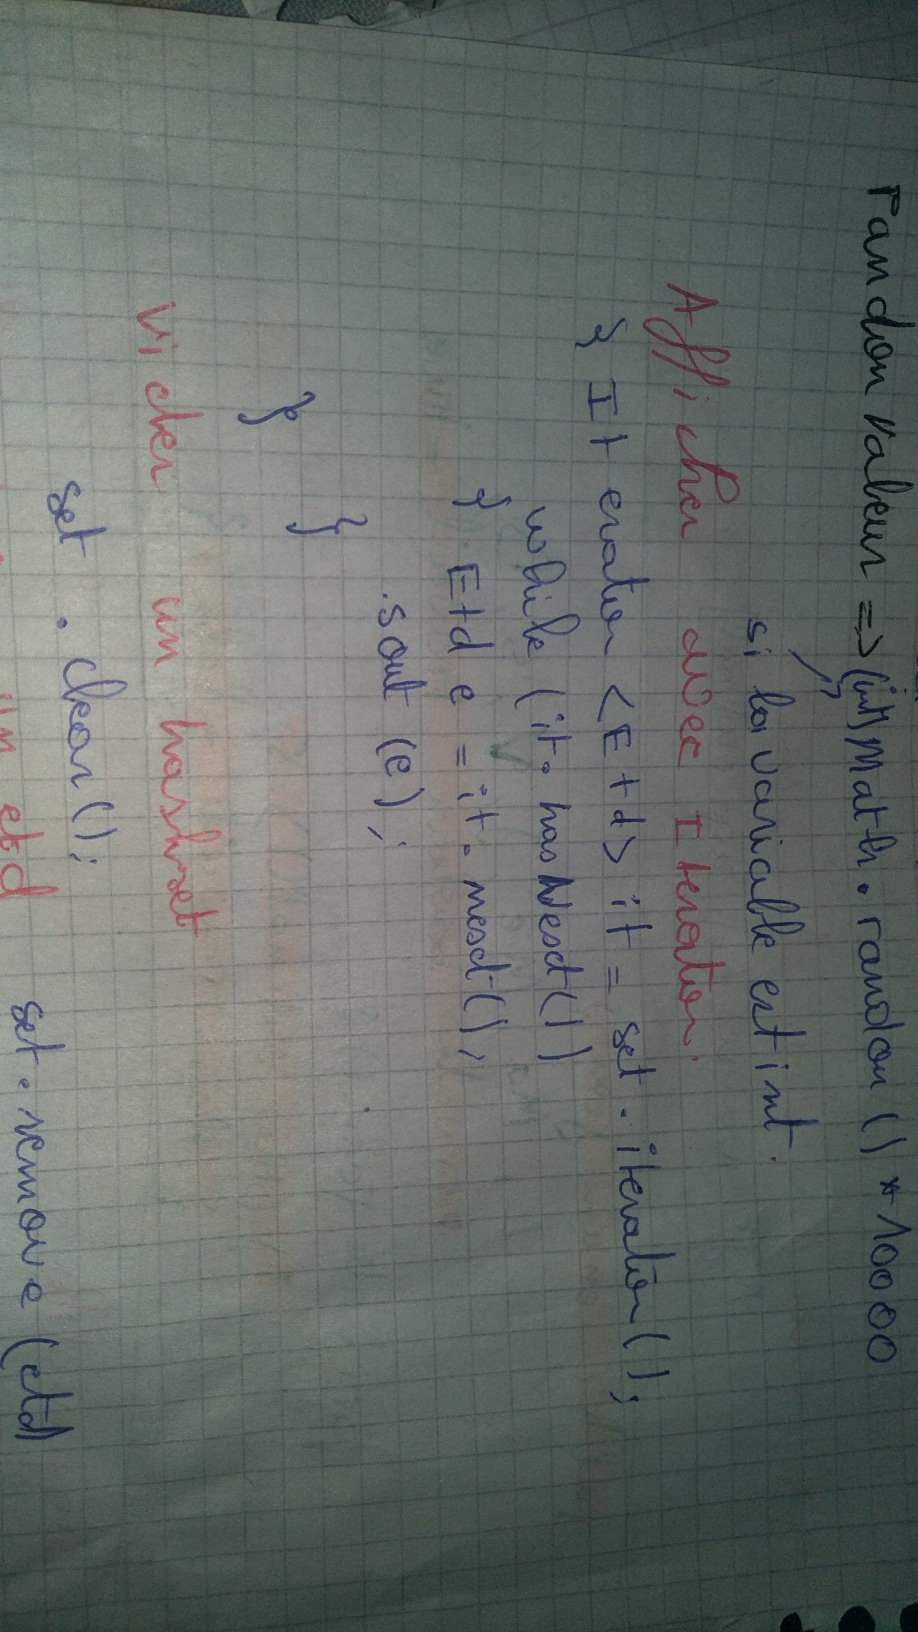 randon valeur => (int) Math.random () * 10000
si la variable est int.
Afficher avec Iterator.
{ Iterator <Etd> it = set.iterator();
while (it.hasNext())
{ Etd e = it.next();
sout (e);
}
}
Vider un hashset
set.clear();
un etd set.remove (etd)